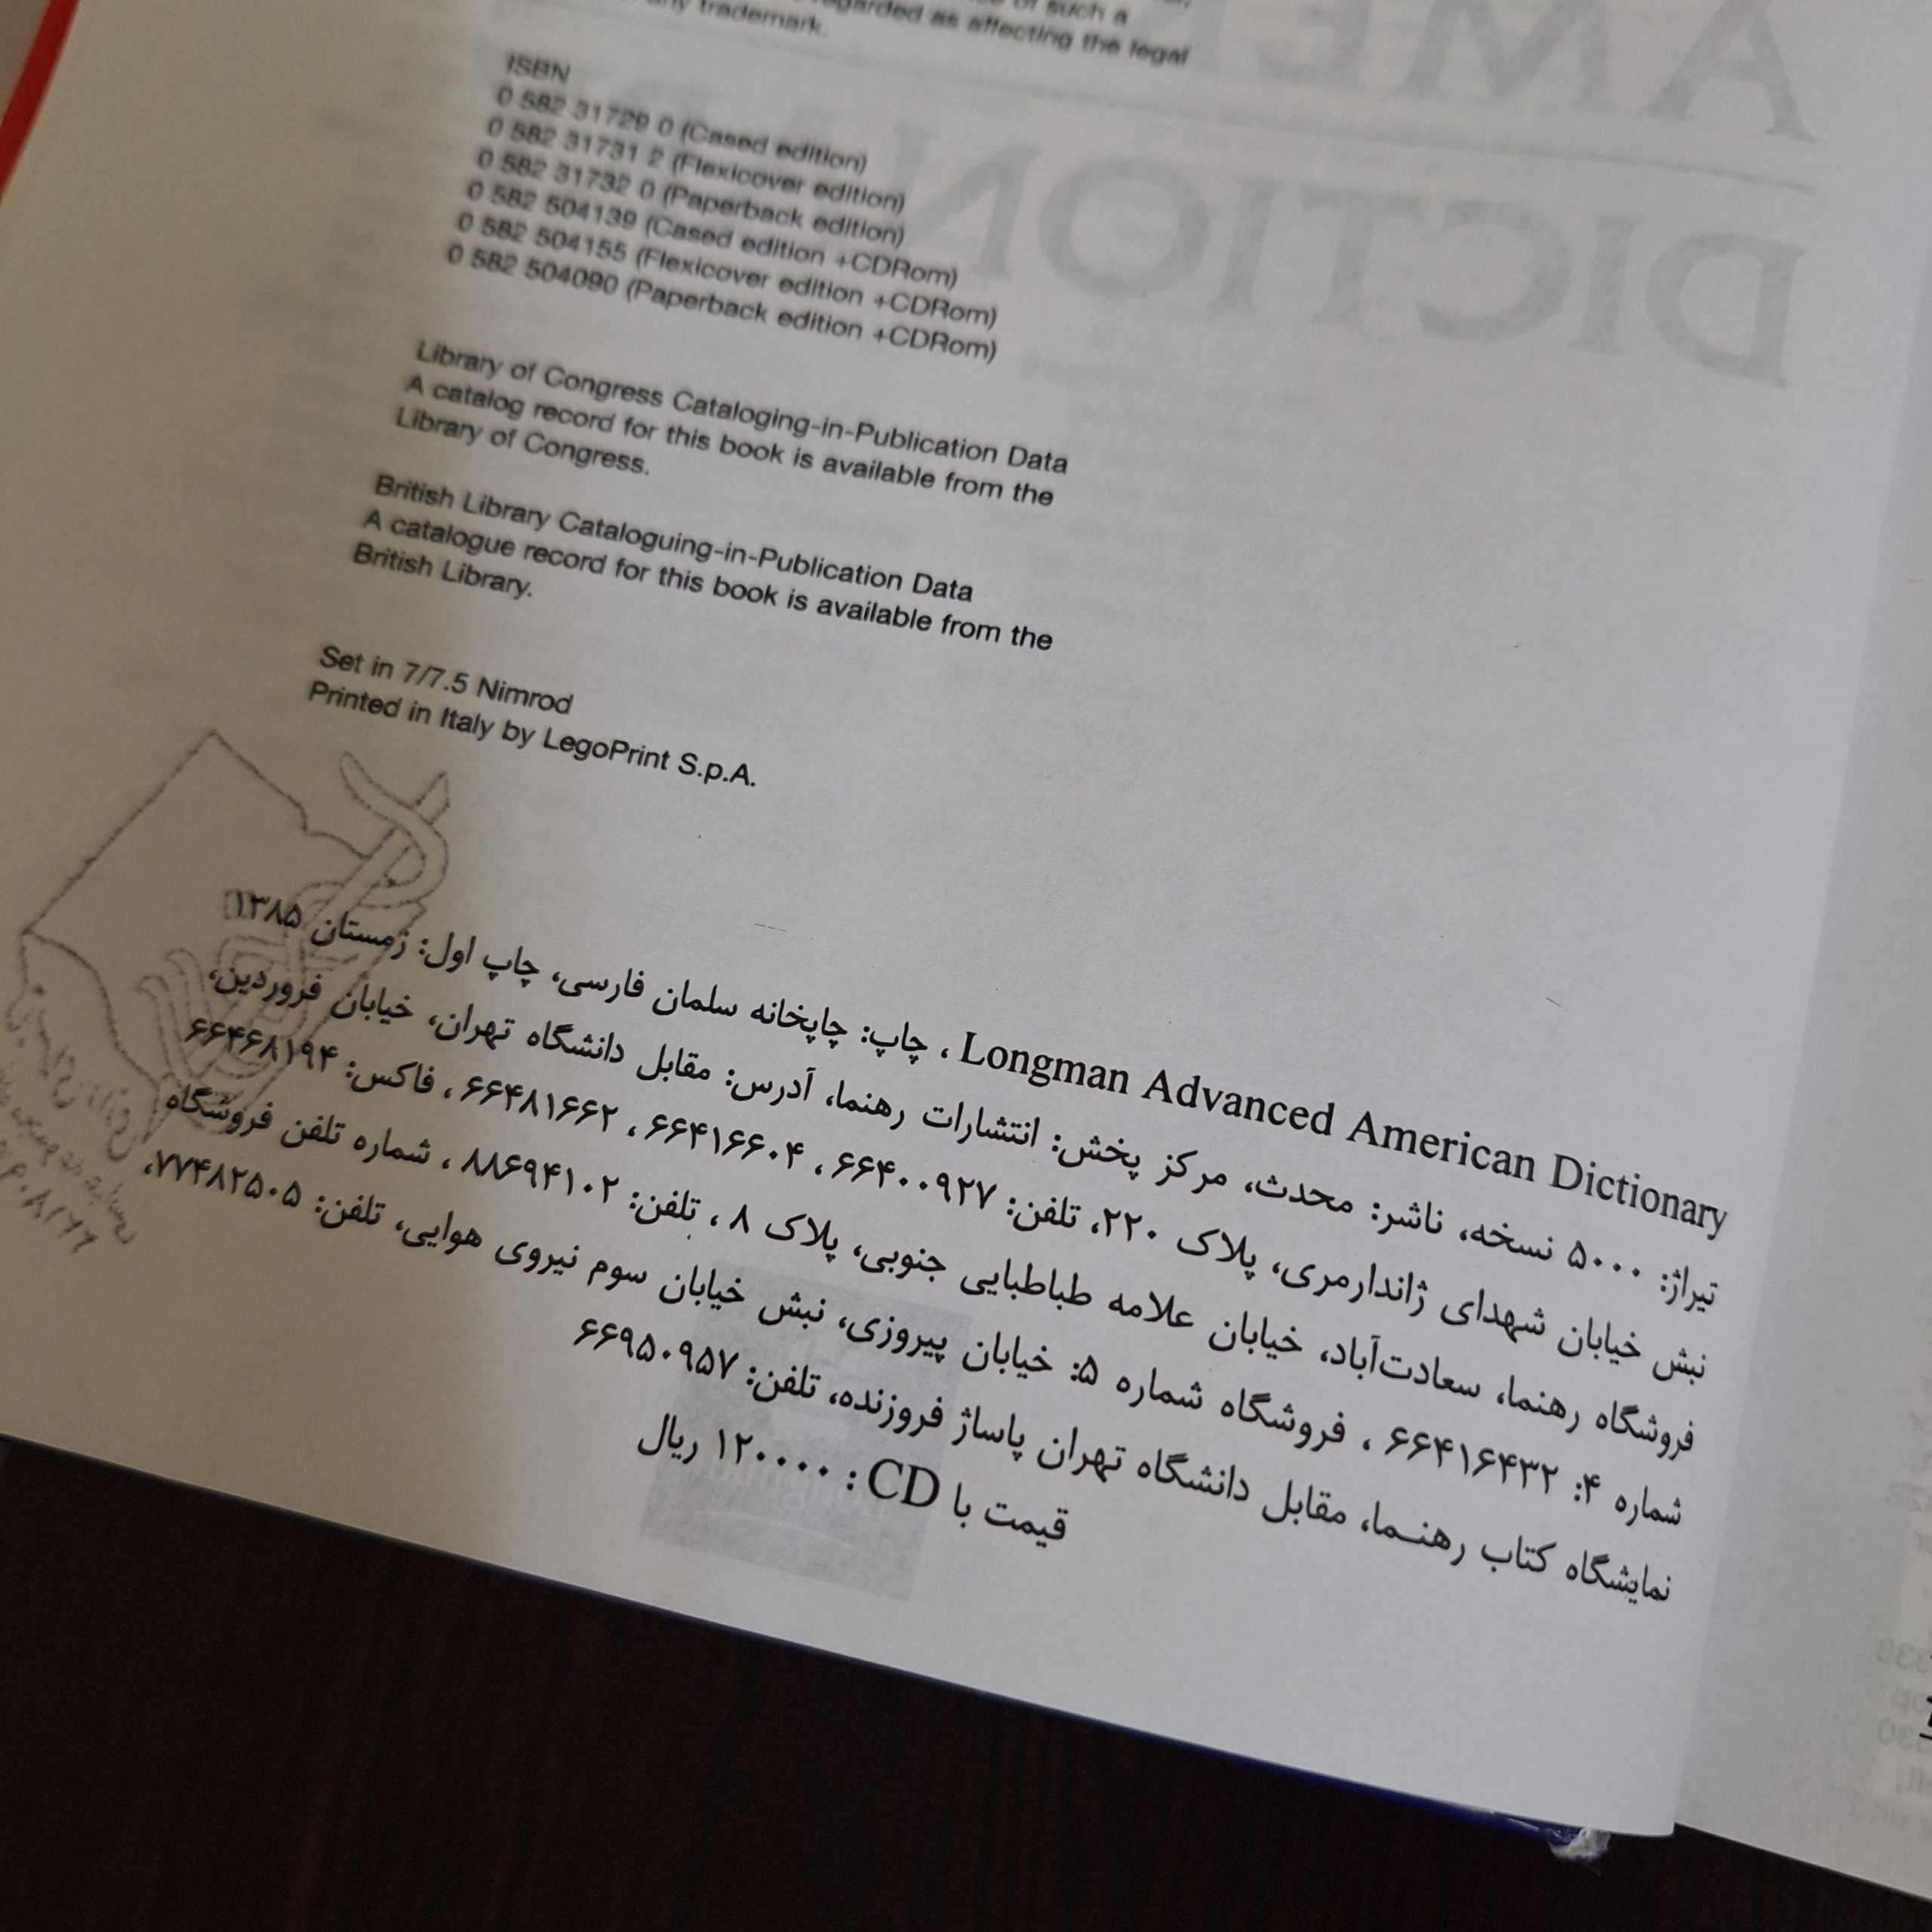 of such a
regarded as affecting the legal
any trademark.
ISBN
0 582 31729 0 (Cased edition)
0 582 31731 2 (Flexicover edition)
0 582 31732 0 (Paperback edition)
0 582 504139 (Cased edition +CDRom)
0 582 504155 (Flexicover edition +CDRom)
0 582 504090 (Paperback edition +CDRom)
Library of Congress Cataloging-in-Publication Data
A catalog record for this book is available from the
Library of Congress.
British Library Cataloguing-in-Publication Data
A catalogue record for this book is available from the
British Library.
Set in 7/7.5 Nimrod
Printed in Italy by LegoPrint S.p.A.
Longman Advanced American Dictionary ، چاپ: چاپخانه سلمان فارسی، چاپ اول: زمستان ۱۳۸۵
تیراژ: ۵۰۰۰ نسخه، ناشر: محدث، مرکز پخش: انتشارات رهنما، آدرس: مقابل دانشگاه تهران، خیابان فروردین،
نبش خیابان شهدای ژاندارمری، پلاک ۲۲۰، تلفن: ۶۶۴۰۰۹۲۷ ، ۶۶۴۱۶۶۰۴ ، ۶۶۴۸۱۶۶۲ ، فاکس: ۶۶۴۶۸۱۹۴
فروشگاه رهنما، سعادت‌آباد، خیابان علامه طباطبایی جنوبی، پلاک ۸ ، تلفن: ۸۸۶۹۴۱۰۲ ، شماره تلفن فروشگاه
شماره ۴: ۶۶۴۱۶۴۳۲ ، فروشگاه شماره ۵: خیابان پیروزی، نبش خیابان سوم نیروی هوایی، تلفن: ۷۷۴۸۲۵۰۵،
نمایشگاه کتاب رهنما، مقابل دانشگاه تهران پاساژ فروزنده، تلفن: ۶۶۹۵۰۹۵۷
قیمت با CD : ۱۲۰۰۰۰ ریال